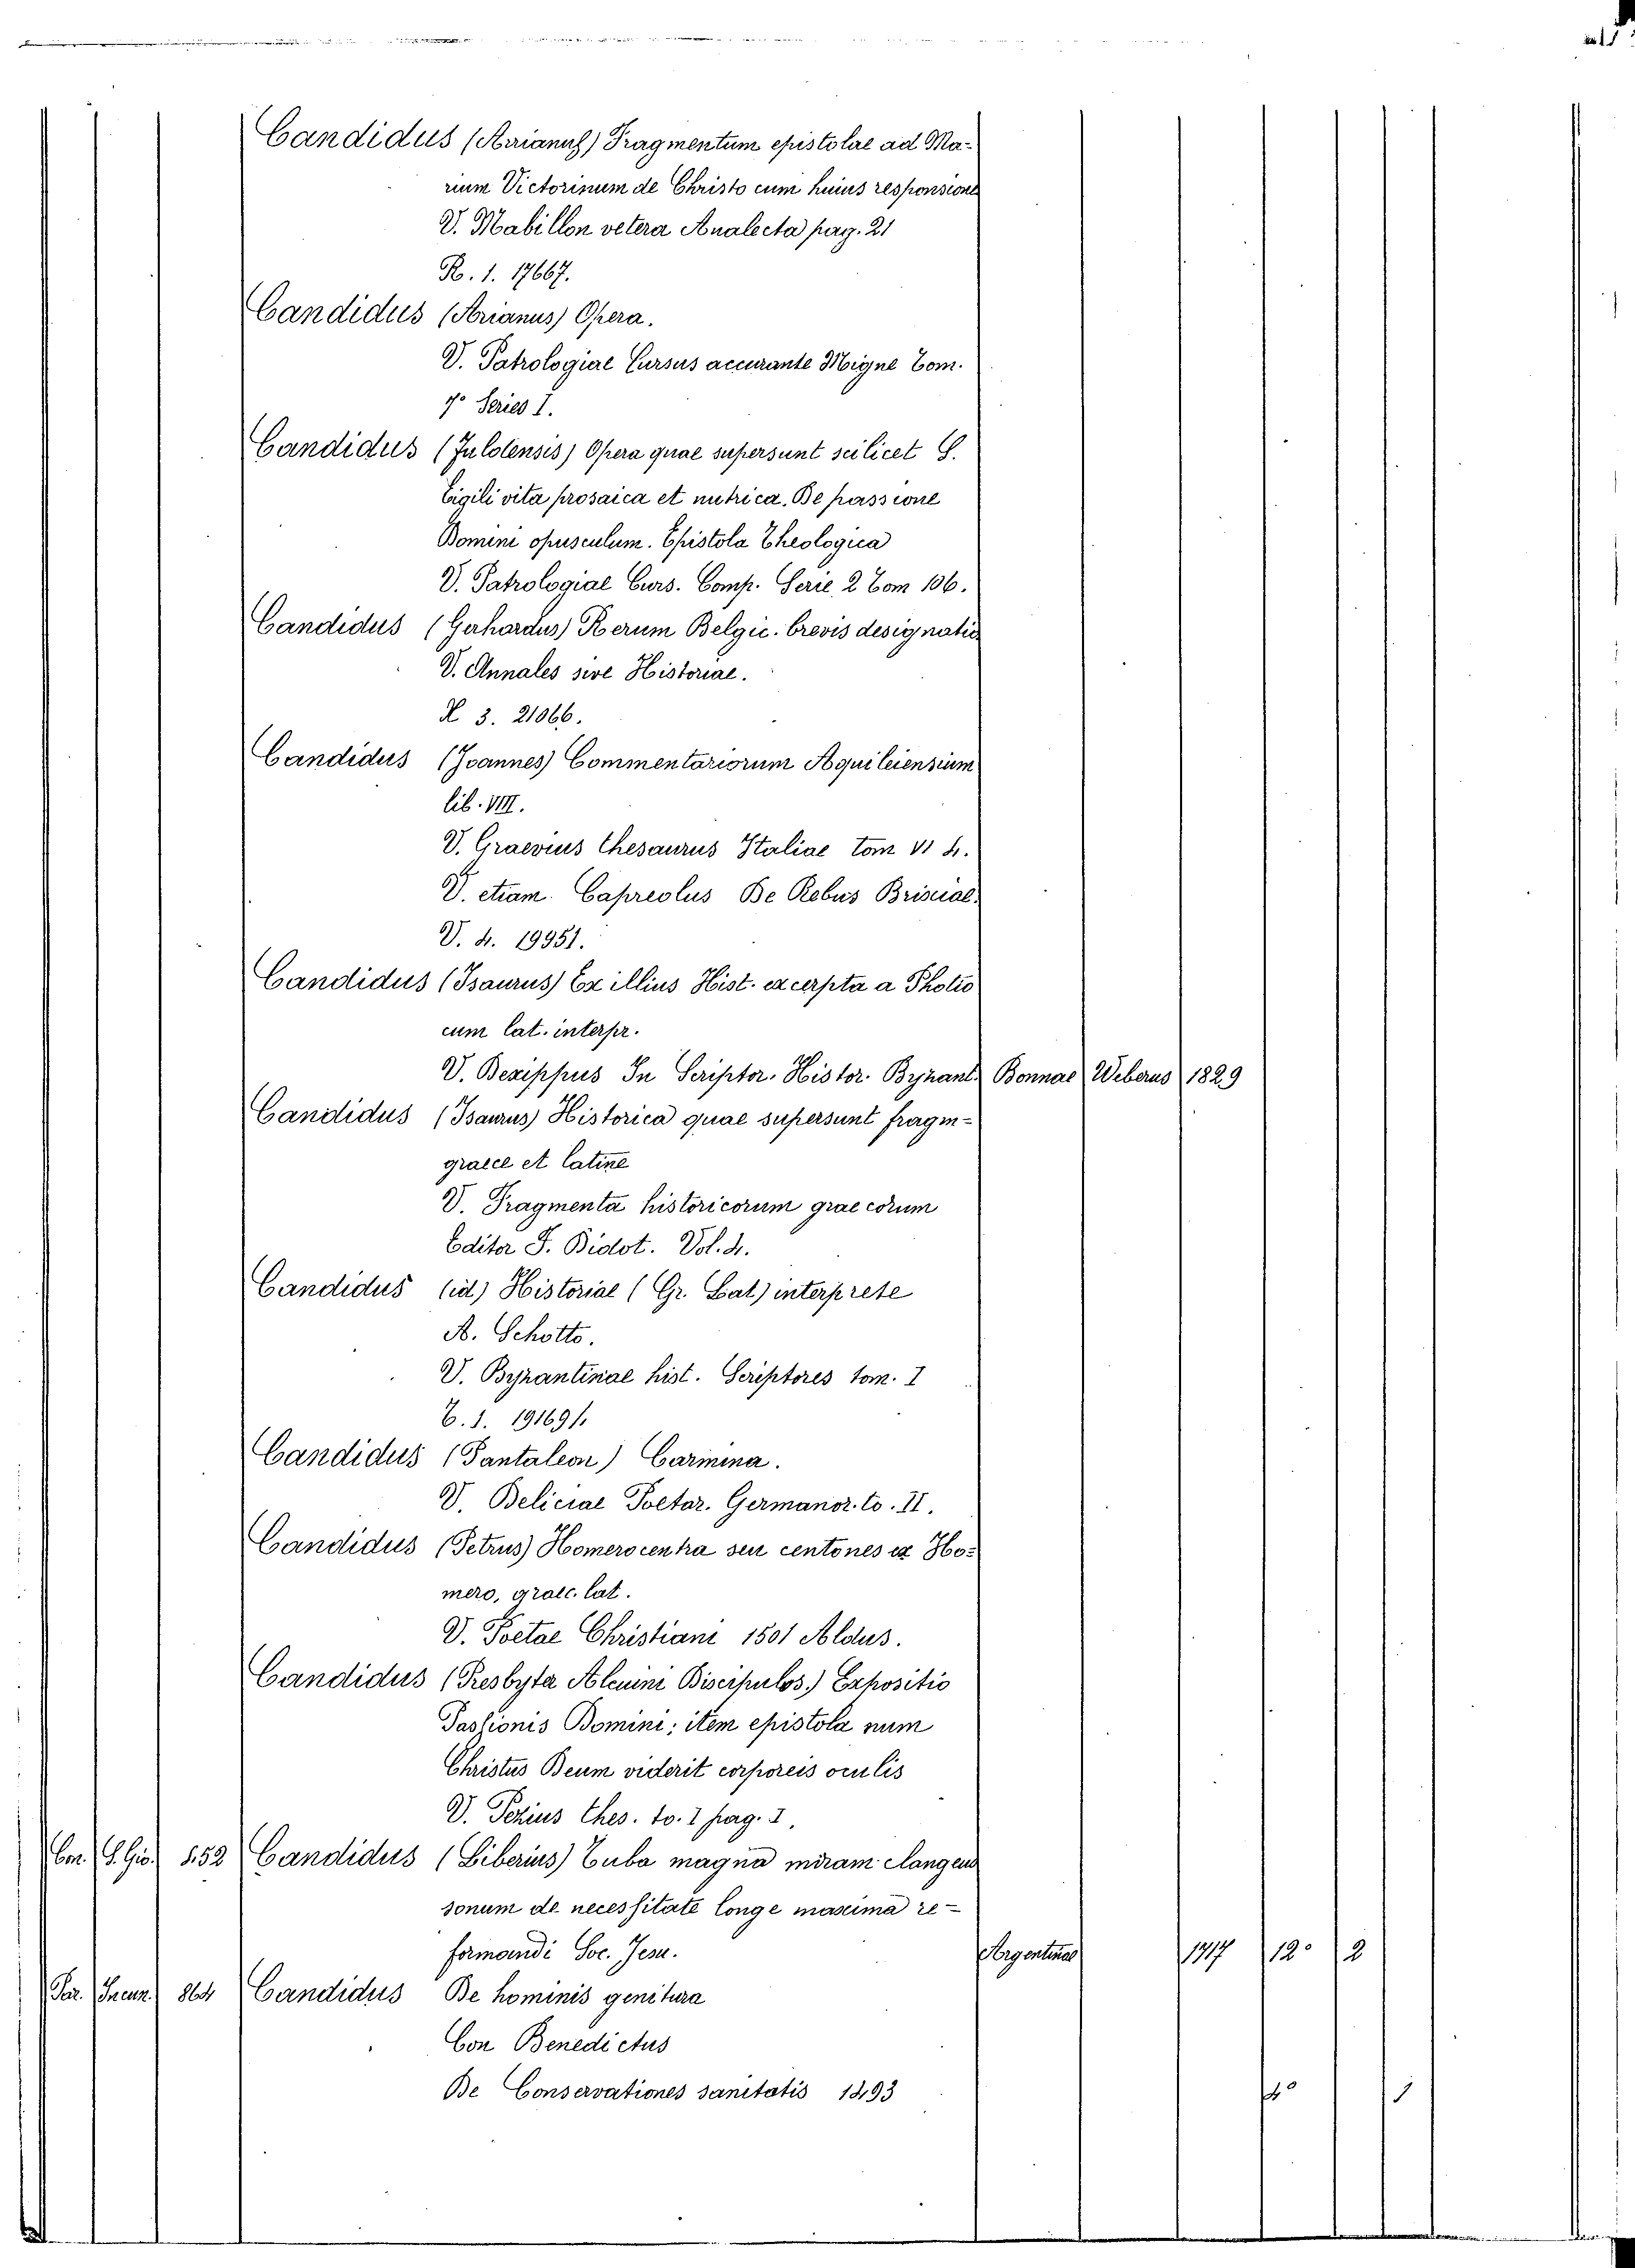 Candidus (Arrianus) Fragmentum epistolae ad Ma-
rium Victorinum de Christo cum huius responsione
V. Mabillon vetera Analecta pag. 21
R. 1. 17667.
Candidus (Arianus) Opera.
V. Patrologiae Cursus accurante Migne Tom.
7° Series I.
Candidus (Fuldensis) Opera quae supersunt scilicet S.
Eigili vita prosaica et mitrica. De passione
Domini opusculum. Epistola Theologica
V. Patrologiae Curs. Comp. Serie 2 Tom 106.
Candidus (Gerhardus) Rerum Belgic. brevis designatio
V. Annales sive Historiae.
X 3. 21066.
Candidus (Joannes) Commentariorum Aquileiensium
lib. VIII.
V. Graevius Thesaurus Italiae tom VI 4.
V. etiam Capreolus De Rebus Brisciae.
V. 4. 19951.
Candidus (Isaurus) Ex illius Hist. excerpta a Photio
cum lat. interpr.
V. Dexippus In Scriptor. Histor. Byzant. Bonnae Weberus 1829
Candidus (Isaurus) Historica quae supersunt fragm-
graece et latine
V. Fragmenta historicorum graecorum
Editor F. Didot. Vol. 4.
Candidus (id) Historiae (Gr. Lat) interprete
A. Schotto.
V. Byzantinae hist. Scriptores tom. I
T. 1. 19169/1
Candidus (Pantaleon) Carmina.
V. Deliciae Poetar. Germanor. to. II.
Candidus (Petrus) Homerocentra seu centones ex Ho-
mero, graec. lat.
V. Poetae Christiani 1501 Aldus.
Candidus (Presbyter Alcuini Discipulos.) Expositio
Passionis Domini; item epistola num
Christus Deum viderit corporeis oculis
V. Pezius Thes. to. I pag. I.
Com. S. Gio. 552 Candidus (Liberius) Tuba magna miram clangens
sonum de necessitate longe maxima re-
formandi Soc. Jesu. Argentinae 1717 12° 2
Par. Incun. 864 Candidus De hominis genitura
Con Benedictus
De Conservationes sanitatis 1493 4° 1